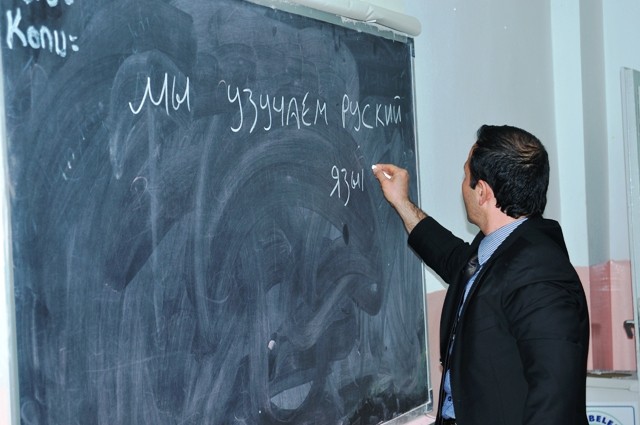 Konu:
Мы узучаем руский
язы
BELE